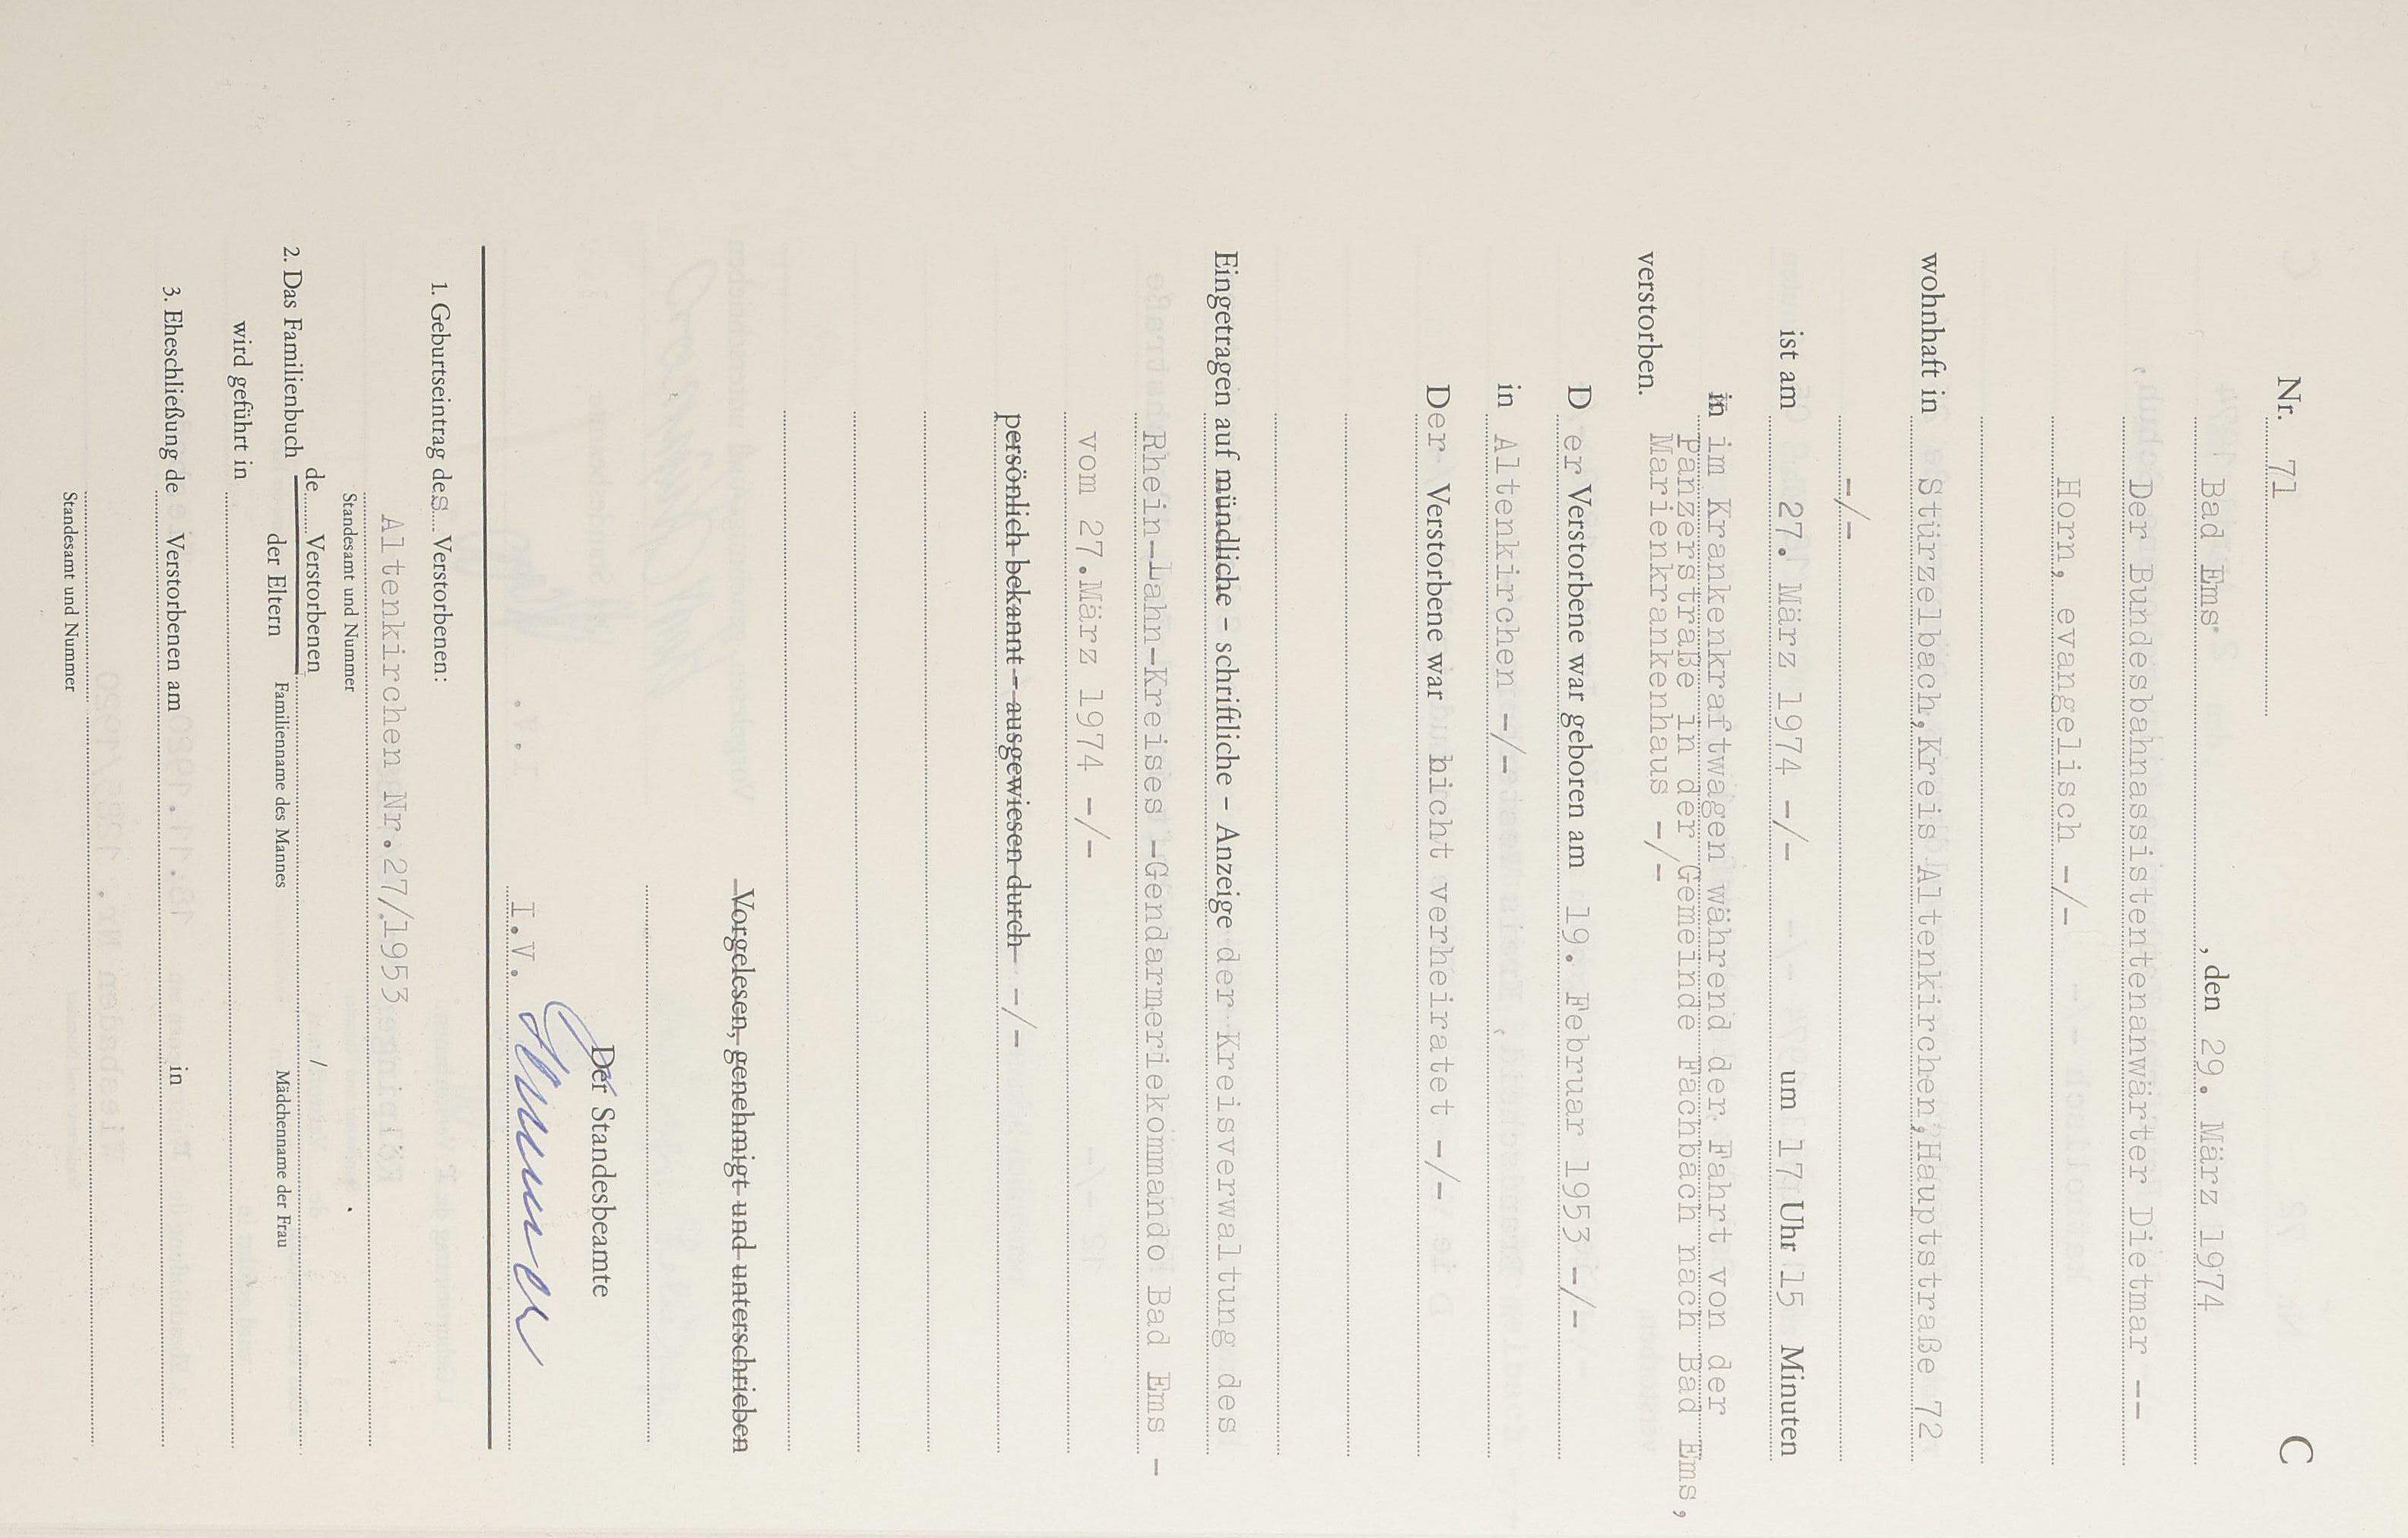 Nr. 71 C
Bad Ems , den 29. März 1974
Der Bundesbahnassistentenanwärter Dietmar --
Horn, evangelisch -/-
wohnhaft in Stürzelbach, Kreis Altenkirchen, Hauptstraße 72
-/-
ist am 27. März 1974 -/- um 17 Uhr 15 Minuten
in im Krankenkraftwagen während der Fahrt von der
Panzerstraße in der Gemeinde Fachbach nach Bad Ems,
verstorben. Marienkrankenhaus -/-
D er Verstorbene war geboren am 19. Februar 1953 -/-
in Altenkirchen -/-
Der Verstorbene war nicht verheiratet -/-
Eingetragen auf mündliche - schriftliche - Anzeige der Kreisverwaltung des
Rhein-Lahn-Kreises -Gendarmeriekommando Bad Ems -
vom 27.März 1974 -/-
persönlich bekannt - ausgewiesen durch -/-
Vorgelesen, genehmigt und unterschrieben
Der Standesbeamte
I.V.
1. Geburtseintrag des Verstorbenen:
Altenkirchen Nr.27/1953
Standesamt und Nummer
de Verstorbenen /
2. Das Familienbuch
der Eltern Familienname des Mannes Mädchenname der Frau
wird geführt in
3. Eheschließung de Verstorbenen am in
Standesamt und Nummer